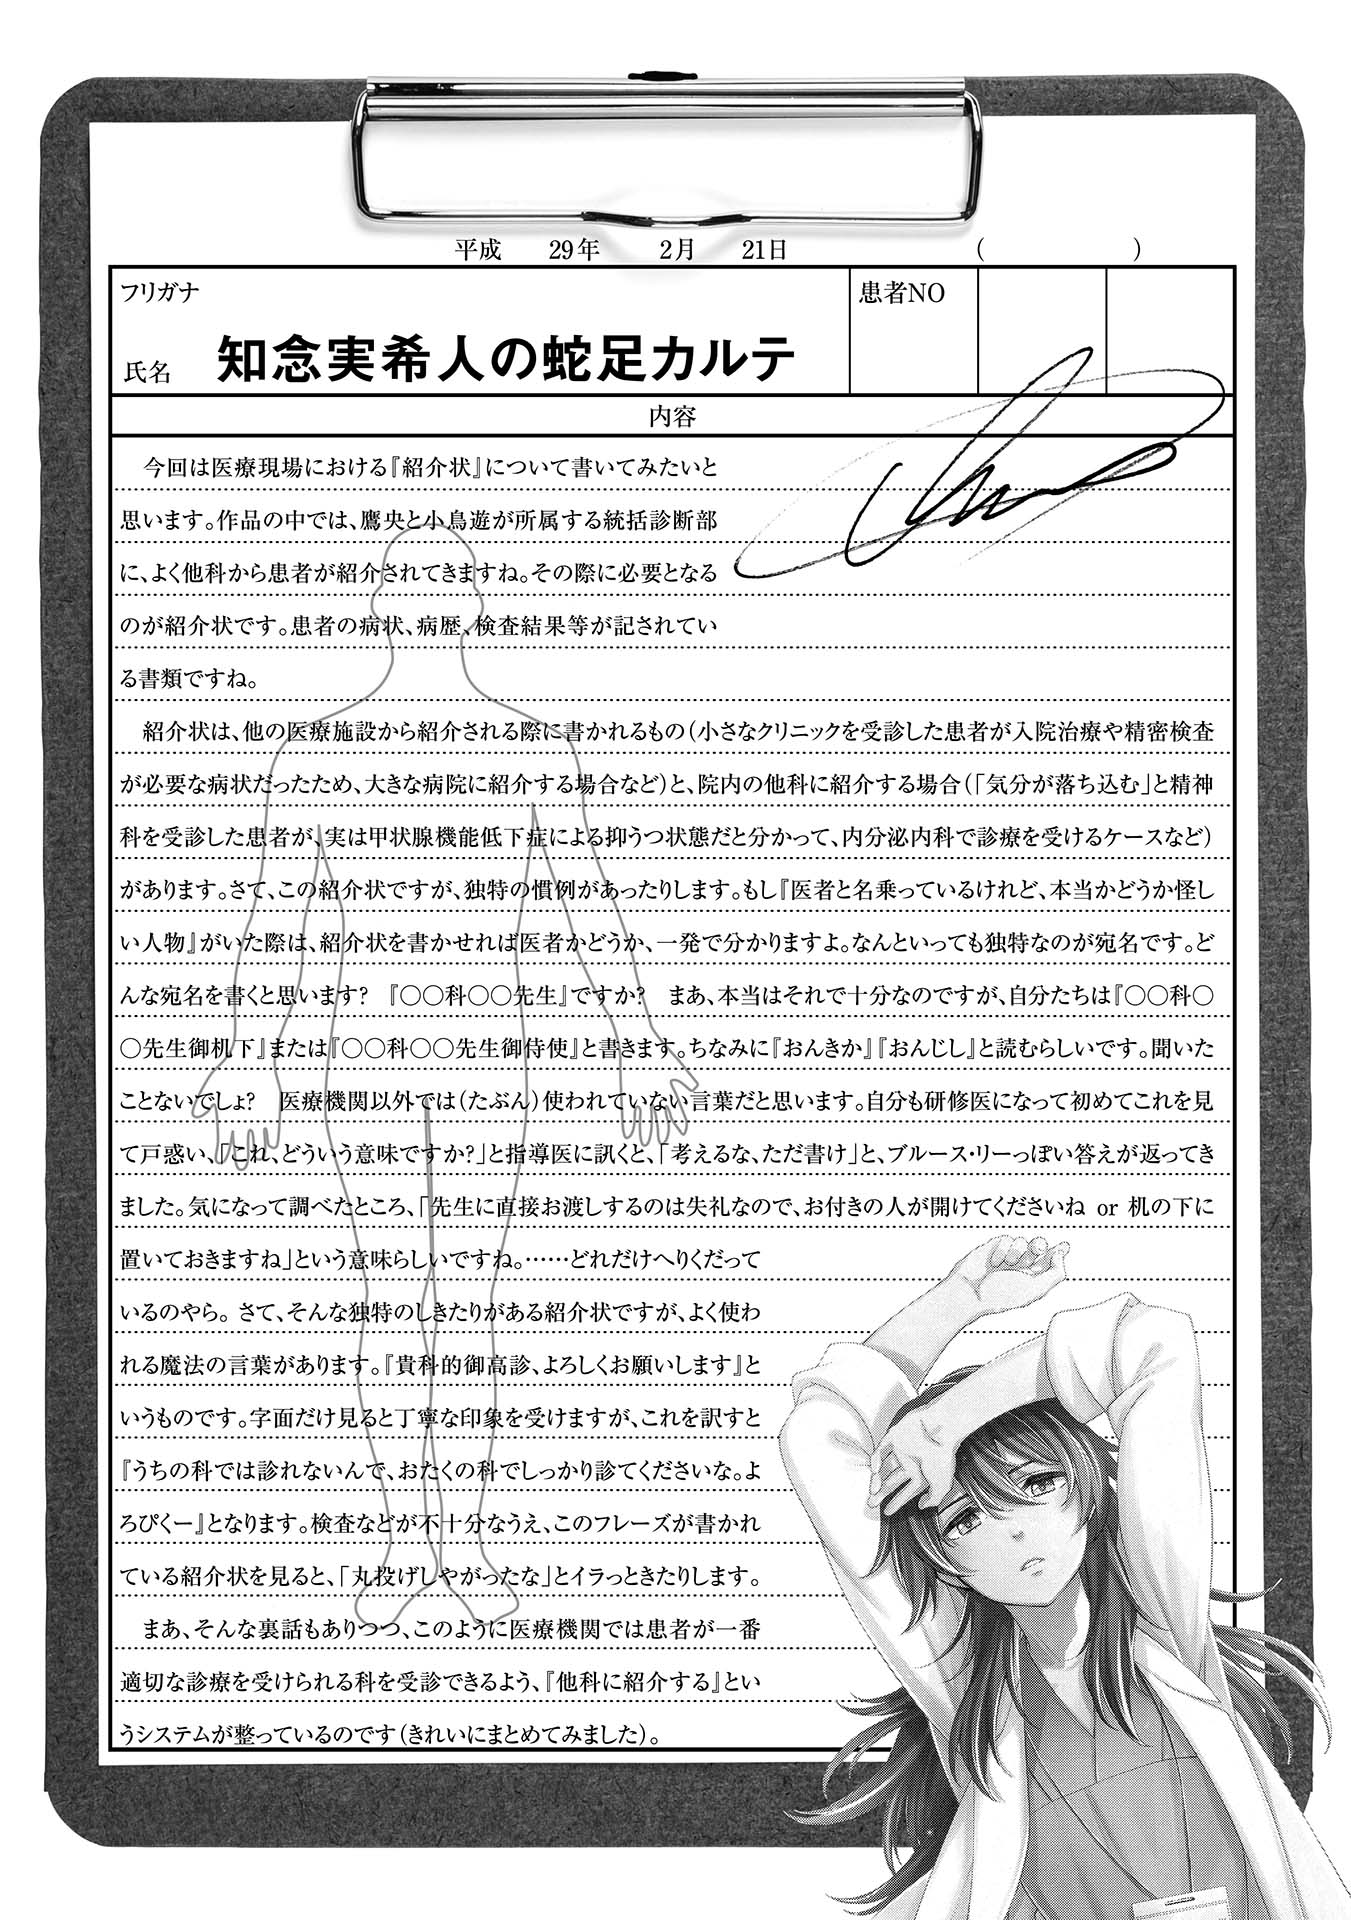 平成　29年　2月　21日　（　　　）
フリガナ
患者NO
氏名　知念実希人の蛇足カルテ
内容
　今回は医療現場における『紹介状』について書いてみたいと
思います。作品の中では、鷹央と小鳥遊が所属する統括診断部
に、よく他科から患者が紹介されてきますね。その際に必要となる
のが紹介状です。患者の病状、病歴、検査結果等が記されてい
る書類ですね。
　紹介状は、他の医療施設から紹介される際に書かれるもの（小さなクリニックを受診した患者が入院治療や精密検査
が必要な病状だったため、大きな病院に紹介する場合など）と、院内の他科に紹介する場合（「気分が落ち込む」と精神
科を受診した患者が、実は甲状腺機能低下症による抑うつ状態だと分かって、内分泌内科で診療を受けるケースなど）
があります。さて、この紹介状ですが、独特の慣例があったりします。もし『医者と名乗っているけれど、本当かどうか怪し
い人物』がいた際は、紹介状を書かせれば医者かどうか、一発で分かりますよ。なんといっても独特なのが宛名です。ど
んな宛名を書くと思います？　『〇〇科〇〇先生』ですか？　まあ、本当はそれで十分なのですが、自分たちは『〇〇科〇
〇先生御机下』または『〇〇科〇〇先生御侍使』と書きます。ちなみに『おんきか』『おんじし』と読むらしいです。聞いた
ことないでしょ？　医療機関以外では（たぶん）使われていない言葉だと思います。自分も研修医になって初めてこれを見
て戸惑い、「これ、どういう意味ですか？」と指導医に訊くと、「考えるな、ただ書け」と、ブルース・リーっぽい答えが返ってき
ました。気になって調べたところ、「先生に直接お渡しするのは失礼なので、お付きの人が開けてくださいね or 机の下に
置いておきますね」という意味らしいですね。……どれだけへりくだって
いるのやら。さて、そんな独特のしきたりがある紹介状ですが、よく使わ
れる魔法の言葉があります。『貴科的御高診、よろしくお願いします』と
いうものです。字面だけ見ると丁寧な印象を受けますが、これを訳すと
『うちの科では診れないんで、おたくの科でしっかり診てくださいな。よ
ろぴくー』となります。検査などが不十分なうえ、このフレーズが書かれ
ている紹介状を見ると、「丸投げしやがったな」とイラっときたりします。
　まあ、そんな裏話もありつつ、このように医療機関では患者が一番
適切な診療を受けられる科を受診できるよう、『他科に紹介する』とい
うシステムが整っているのです（きれいにまとめてみました）。